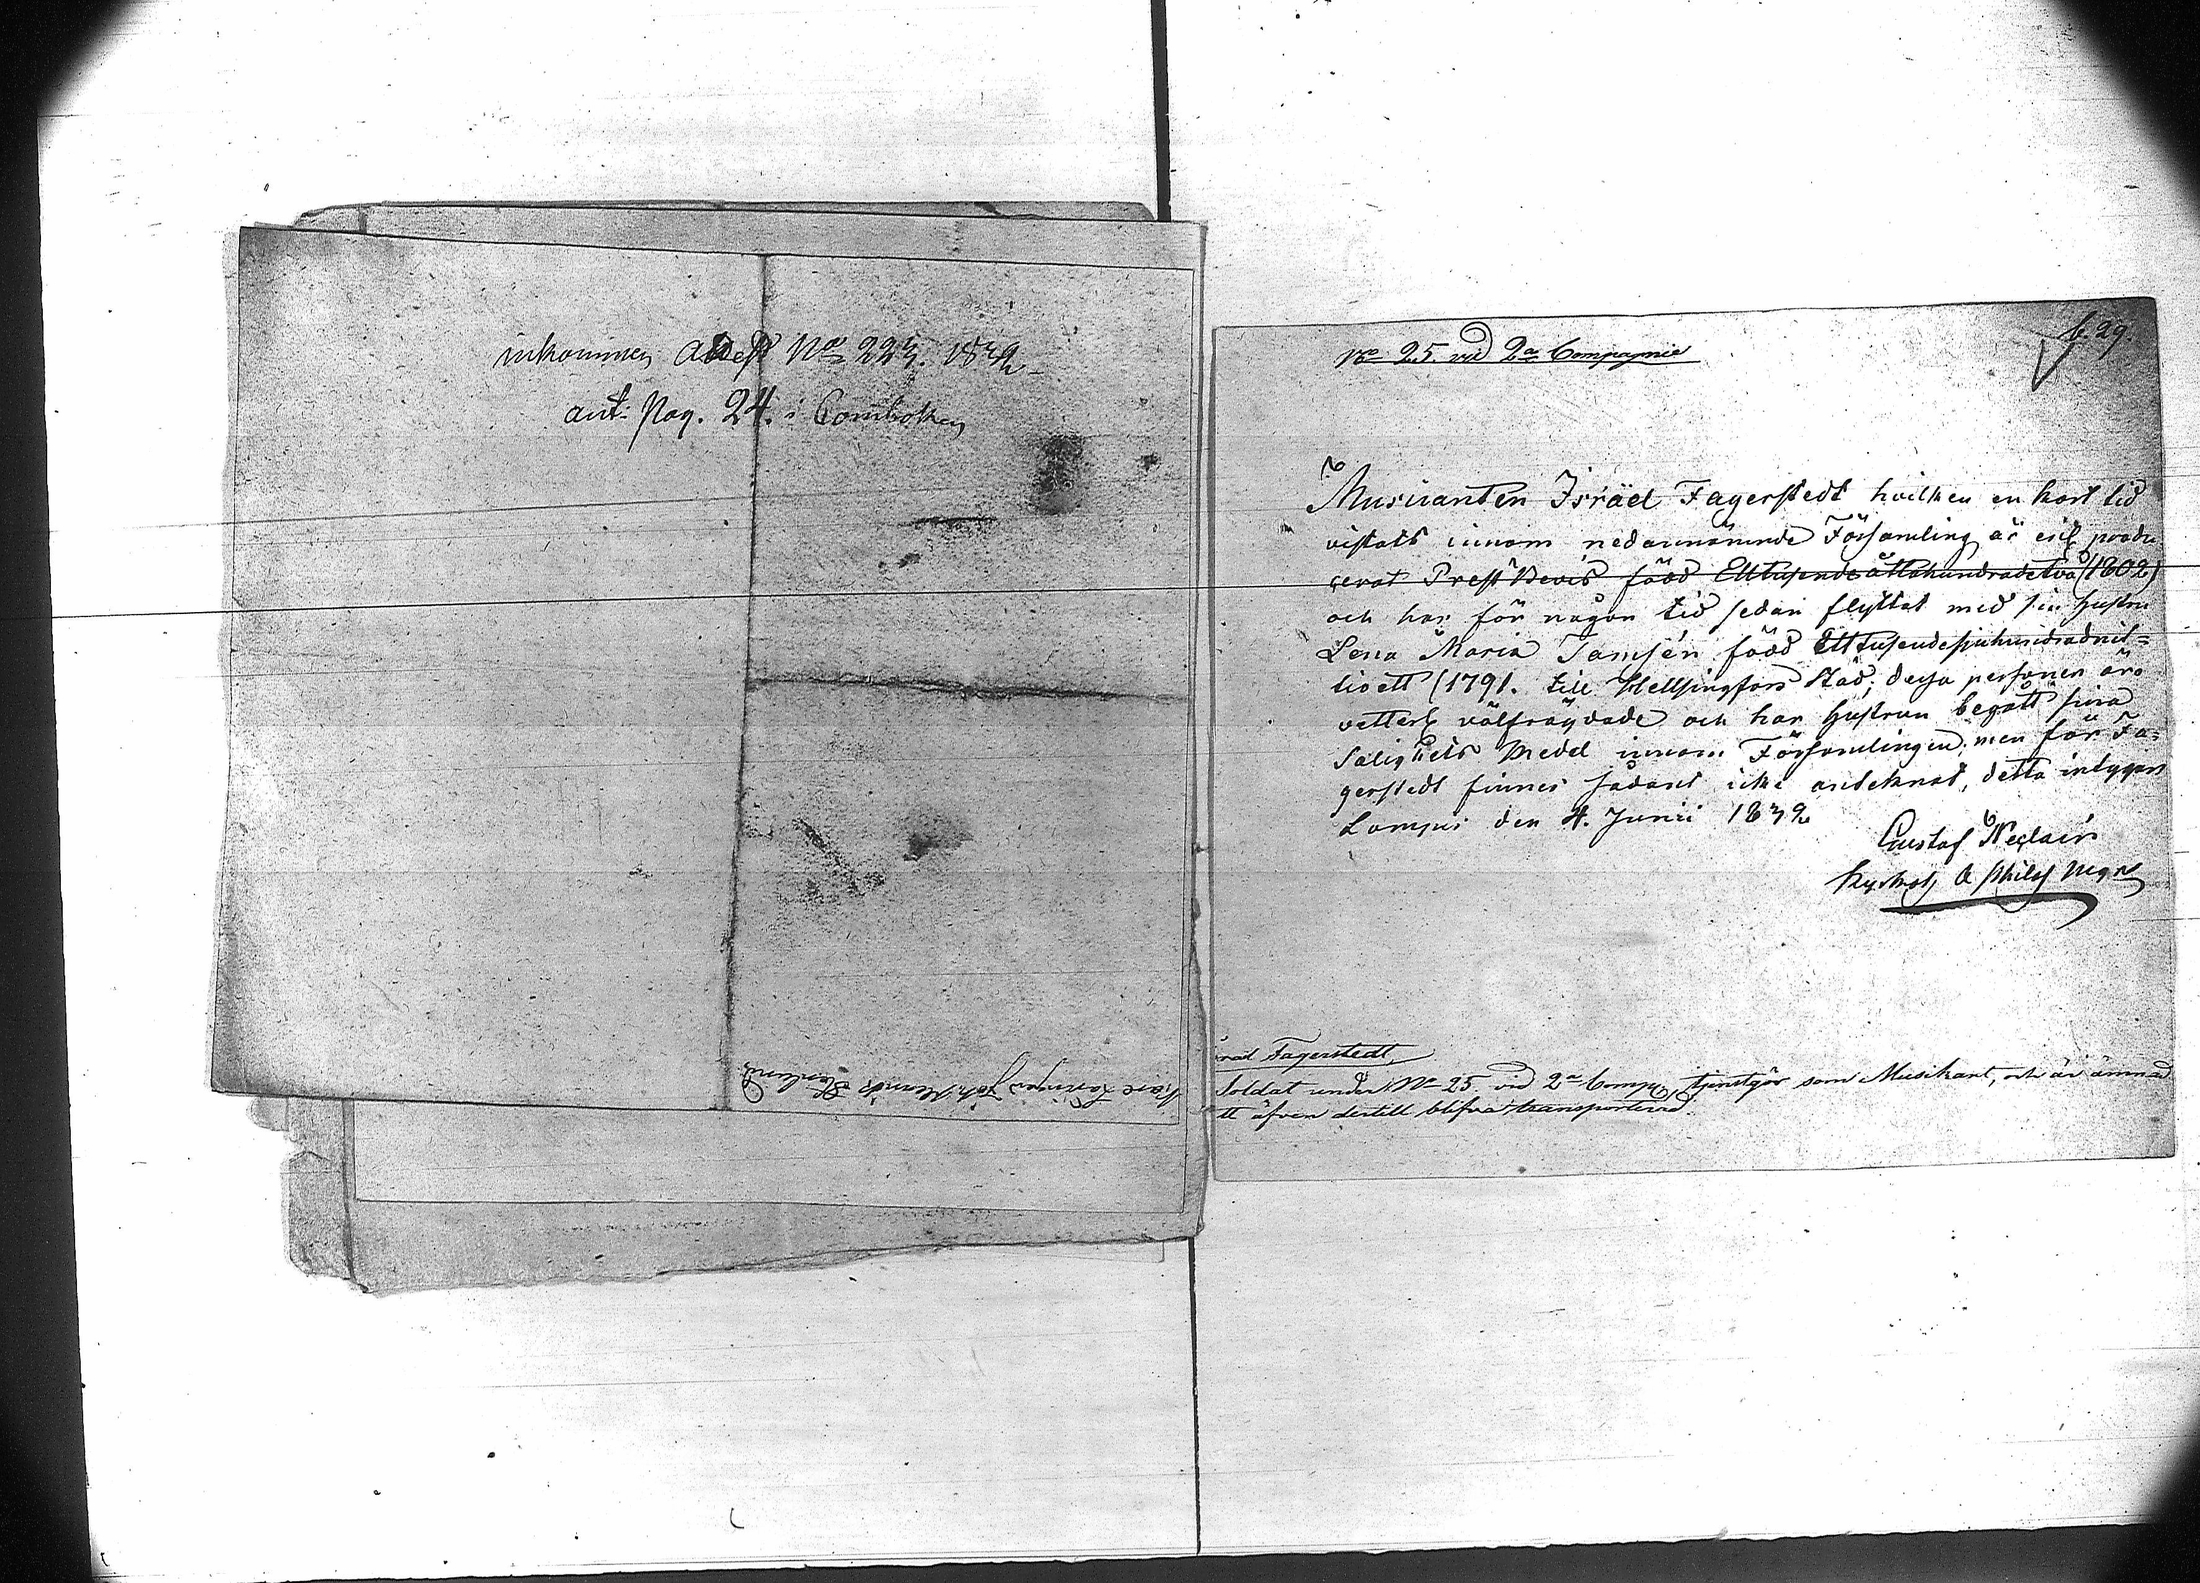 inkommen Attest No 223. 1832
ant: Pag. 24. i Comboken
No 25 vid 2a Compagnie
f. 29.
Musicanten Isräel Fagerstedt hvilken en kort tid
vistats innom nedannämnde Församling är enl produ
cerat Prest Bevis född Ettusendeåttahundradetvå (1802)
och har för någon tid sedan flyttat med sin hustru
Lena Maria Tamsén född Ettusendesjuhundradenit-
tioett (1791. till Helsingfors Stad, dessa personer äro
vetterl välfrägdade och har hustrun begått sina
Salighets Medel innom Församlingen; men för Fa-
gerstedt finnes sådant icke anteknat, detta intygar
Lampis den 4. Junii 1832
Gustaf
rael Fagerstedt
Soldat under No 25. vid 2a Comp, tjenstgör som Musikant, och är ämnad
tt äfven dertill blifva transporterad.